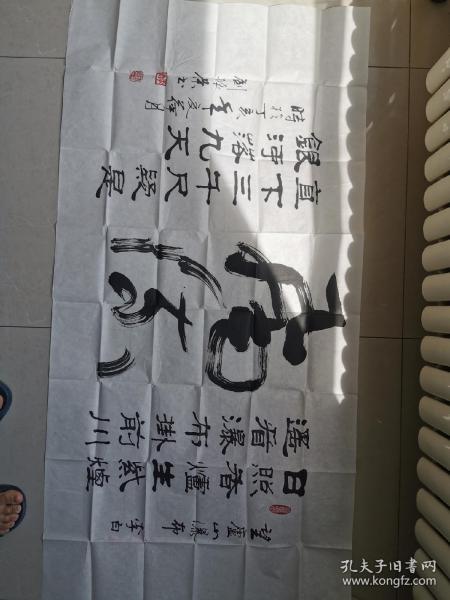 望廬山瀑布 李白
日照香爐生紫煙
遙看瀑布掛前川
飛流
直下三千尺疑是
銀河落九天
時於丁亥年夏月
書
孔夫子旧书网
www.kongfz.com